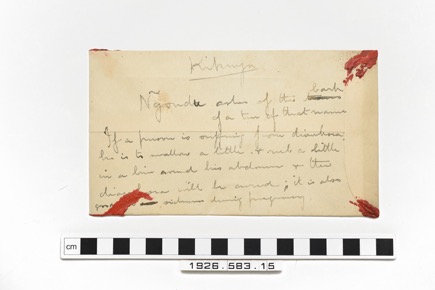 Kibuyu
Ngondu ashes of this bark
of a tree of that name
If a person is suffering from diarrhoea
he is to swallow a little & rub a little
in a line around his abdomen & the
diarrhoea will be cured; it is also
good sickness during pregnancy
cm
1926.583.15